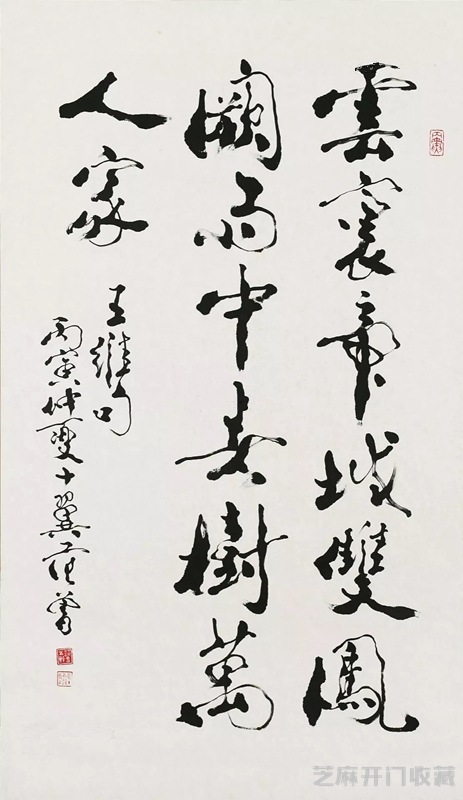 雲裏帝城雙鳳
闕雨中春樹萬
人家
王維句
丙寅仲夏十翼范曾
芝麻开门收藏